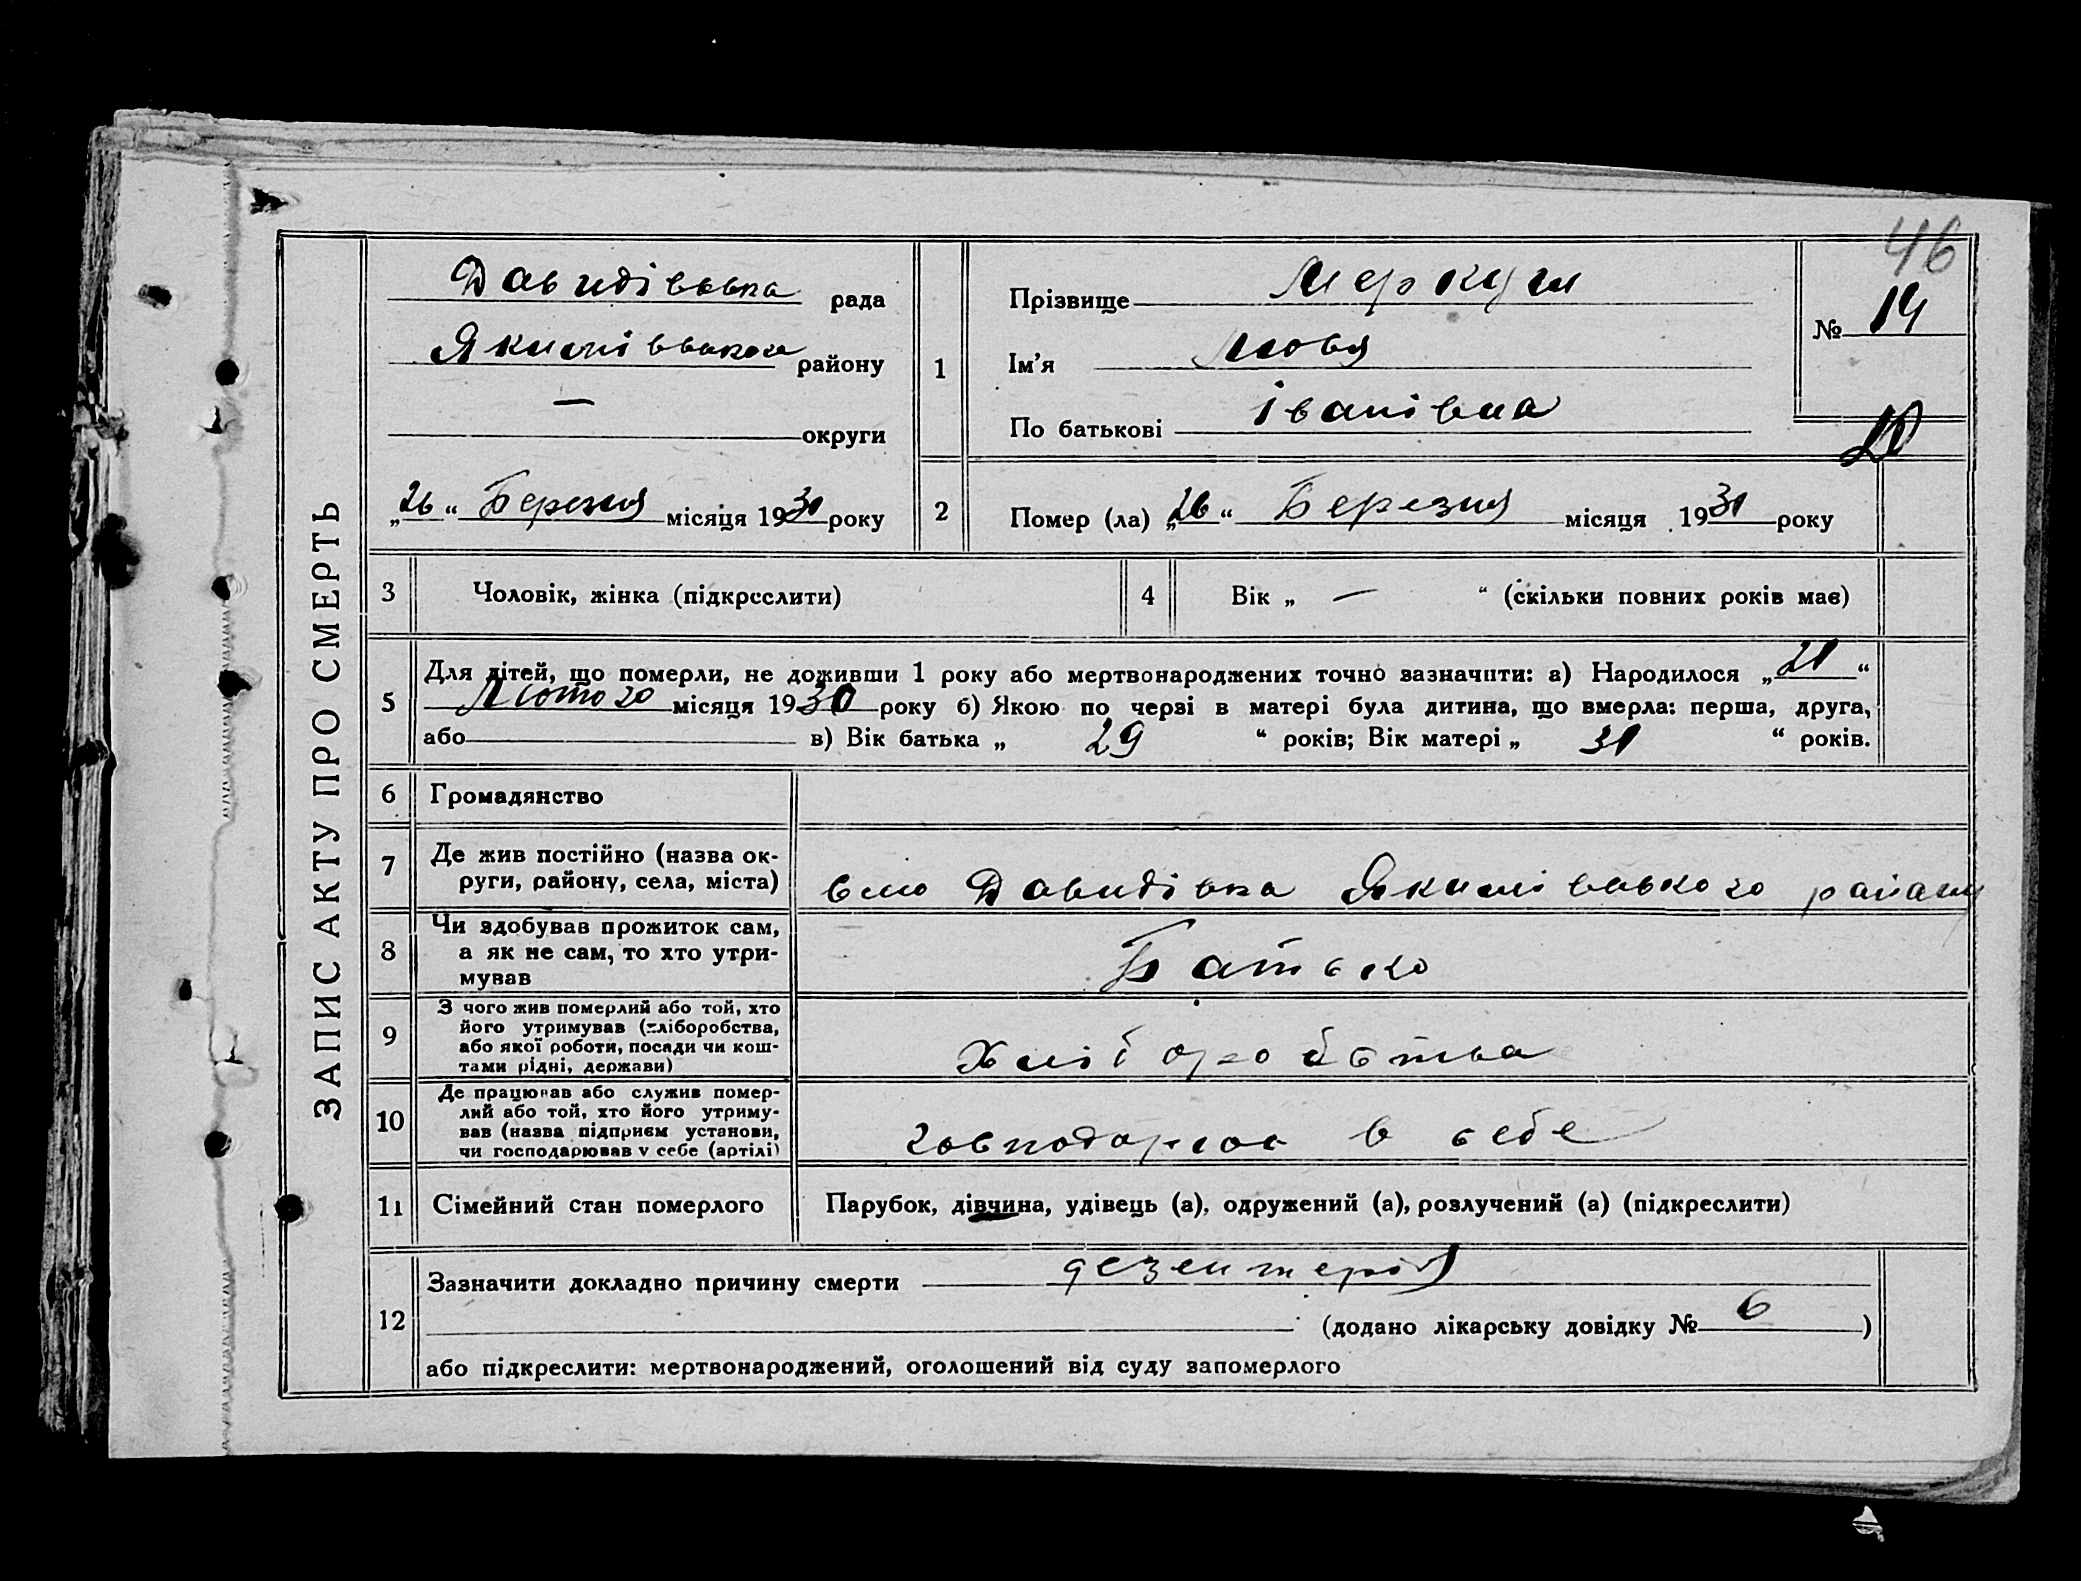 46
ЗАПИС АКТУ ПРО СМЕРТЬ
Давидівська рада
Якимівського району
— округи
„26“ Березня місяця 1931 року
1
Прізвище Меркуш
Ім'я Любя
По батькові Іванівна
№ 14
2
Помер (ла) „26“ Березня місяця 1931 року
3
Чоловік, жінка (підкреслити)
4
Вік „ — “ (скільки повних років має)
5
Для дітей, що померли, не доживши 1 року або мертвонароджених точно зазначити: а) Народилося „21“
Лютого місяця 1930 року б) Якою по черзі в матері була дитина, що вмерла: перша, друга,
або в) Вік батька „ 29 “ років; Вік матері „ 31 “ років.
6
Громадянство
7
Де жив постійно (назва ок-
руги, району, села, міста)
Давидівка Якимівського району
8
Чи здобував прожиток сам,
а як не сам, то хто утри-
мував
Батько
9
З чого жив померлий або той, хто
його утримував (хліборобства,
або якої роботи, посади чи кош-
тами рідні, держави)
Хліборобства
10
Де працював або служив помер-
лий або той, хто його утриму-
вав (назва підприєм установи,
чи господарював у себе (артілі)
в себе
11
Сімейний стан померлого
Парубок, дівчина, удівець (а), одружений (а), розлучений (а) (підкреслити)
12
Зазначити докладно причину смерти дезентерія
(додано лікарську довідку № 6 )
або підкреслити: мертвонароджений, оголошений від суду запомерлого